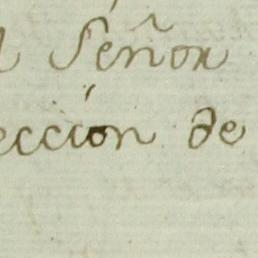 Señor
ección de